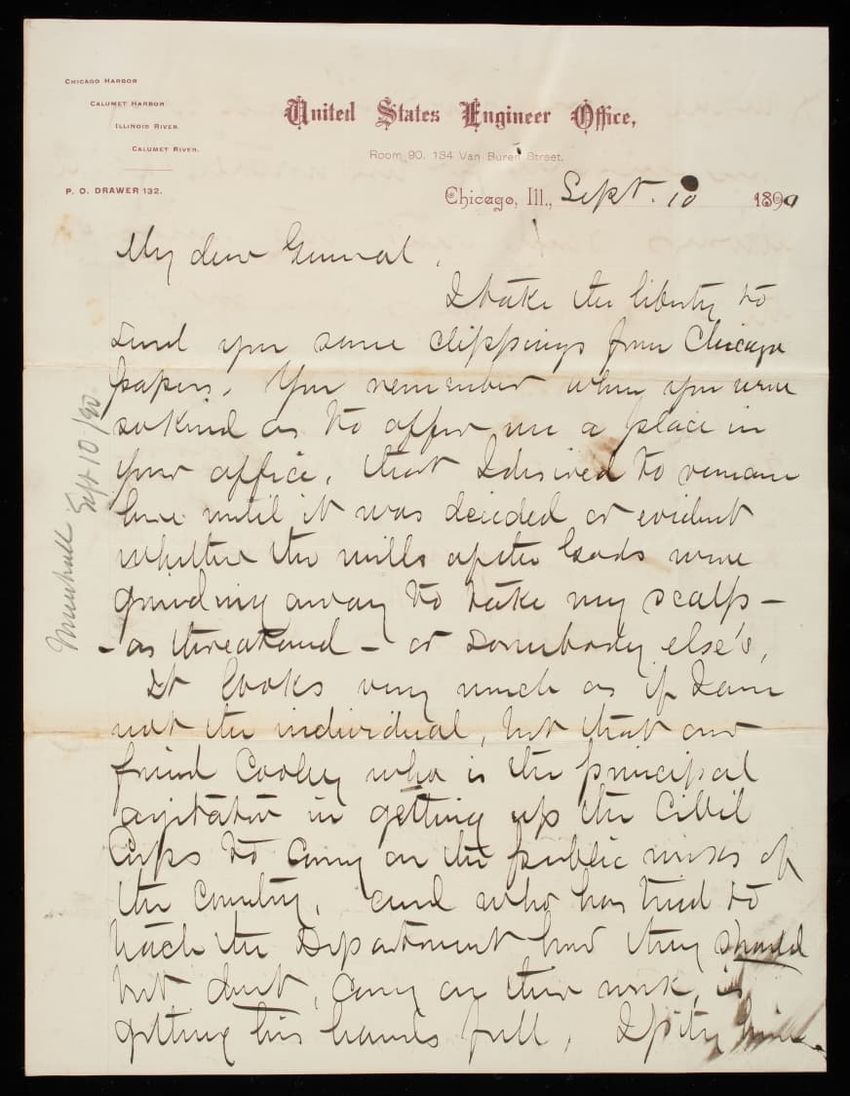 CHICAGO HARBOR
CALUMET HARBOR
ILLINOIS RIVER.
CALUMET RIVER.
P. O. DRAWER 132.
United States Engineer Office,
Room 90, 134 Van Buren Street.
Chicago, Ill., Sept. 10 1890
My dear General,
I take the liberty to
send you some clippings from Chicago
papers. You remember when you were
so kind as to offer me a place in
your office, that I desired to remain
here until it was decided or evident
whether the mills of the Gods were
grinding away to take my scalp -
- as threatened - or somebody else's,
It looks very much as if I am
not the individual, but that our
friend Cooley who is the principal
agitator in getting up the Civil
Corps to carry on the public works of
the country, and who has tried to
teach the Department how they should
but don't, carry on their work, is
getting his hands full, I pity him.
Marshall Sept 10/90